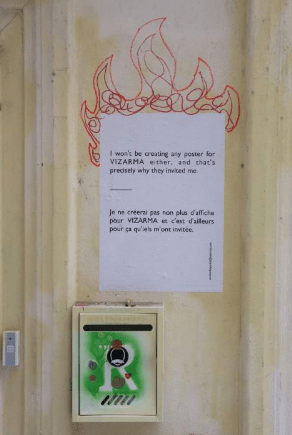 I won't be creating any poster for
VIZARMA either, and that's
precisely why they invited me.
Je ne créerai pas non plus d'affiche
pour VIZARMA et c'est d'ailleurs
pour ça qu'iels m'ont invitée.
R